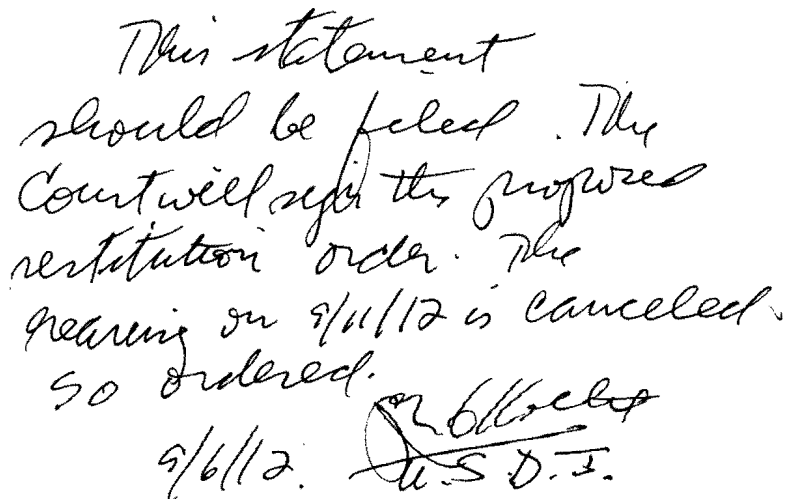 This statement
should be filed. The
Court will sign the proposed
restitution order. The
hearing on 9/11/12 is canceled.
So ordered.
9/6/12. U.S.D.J.